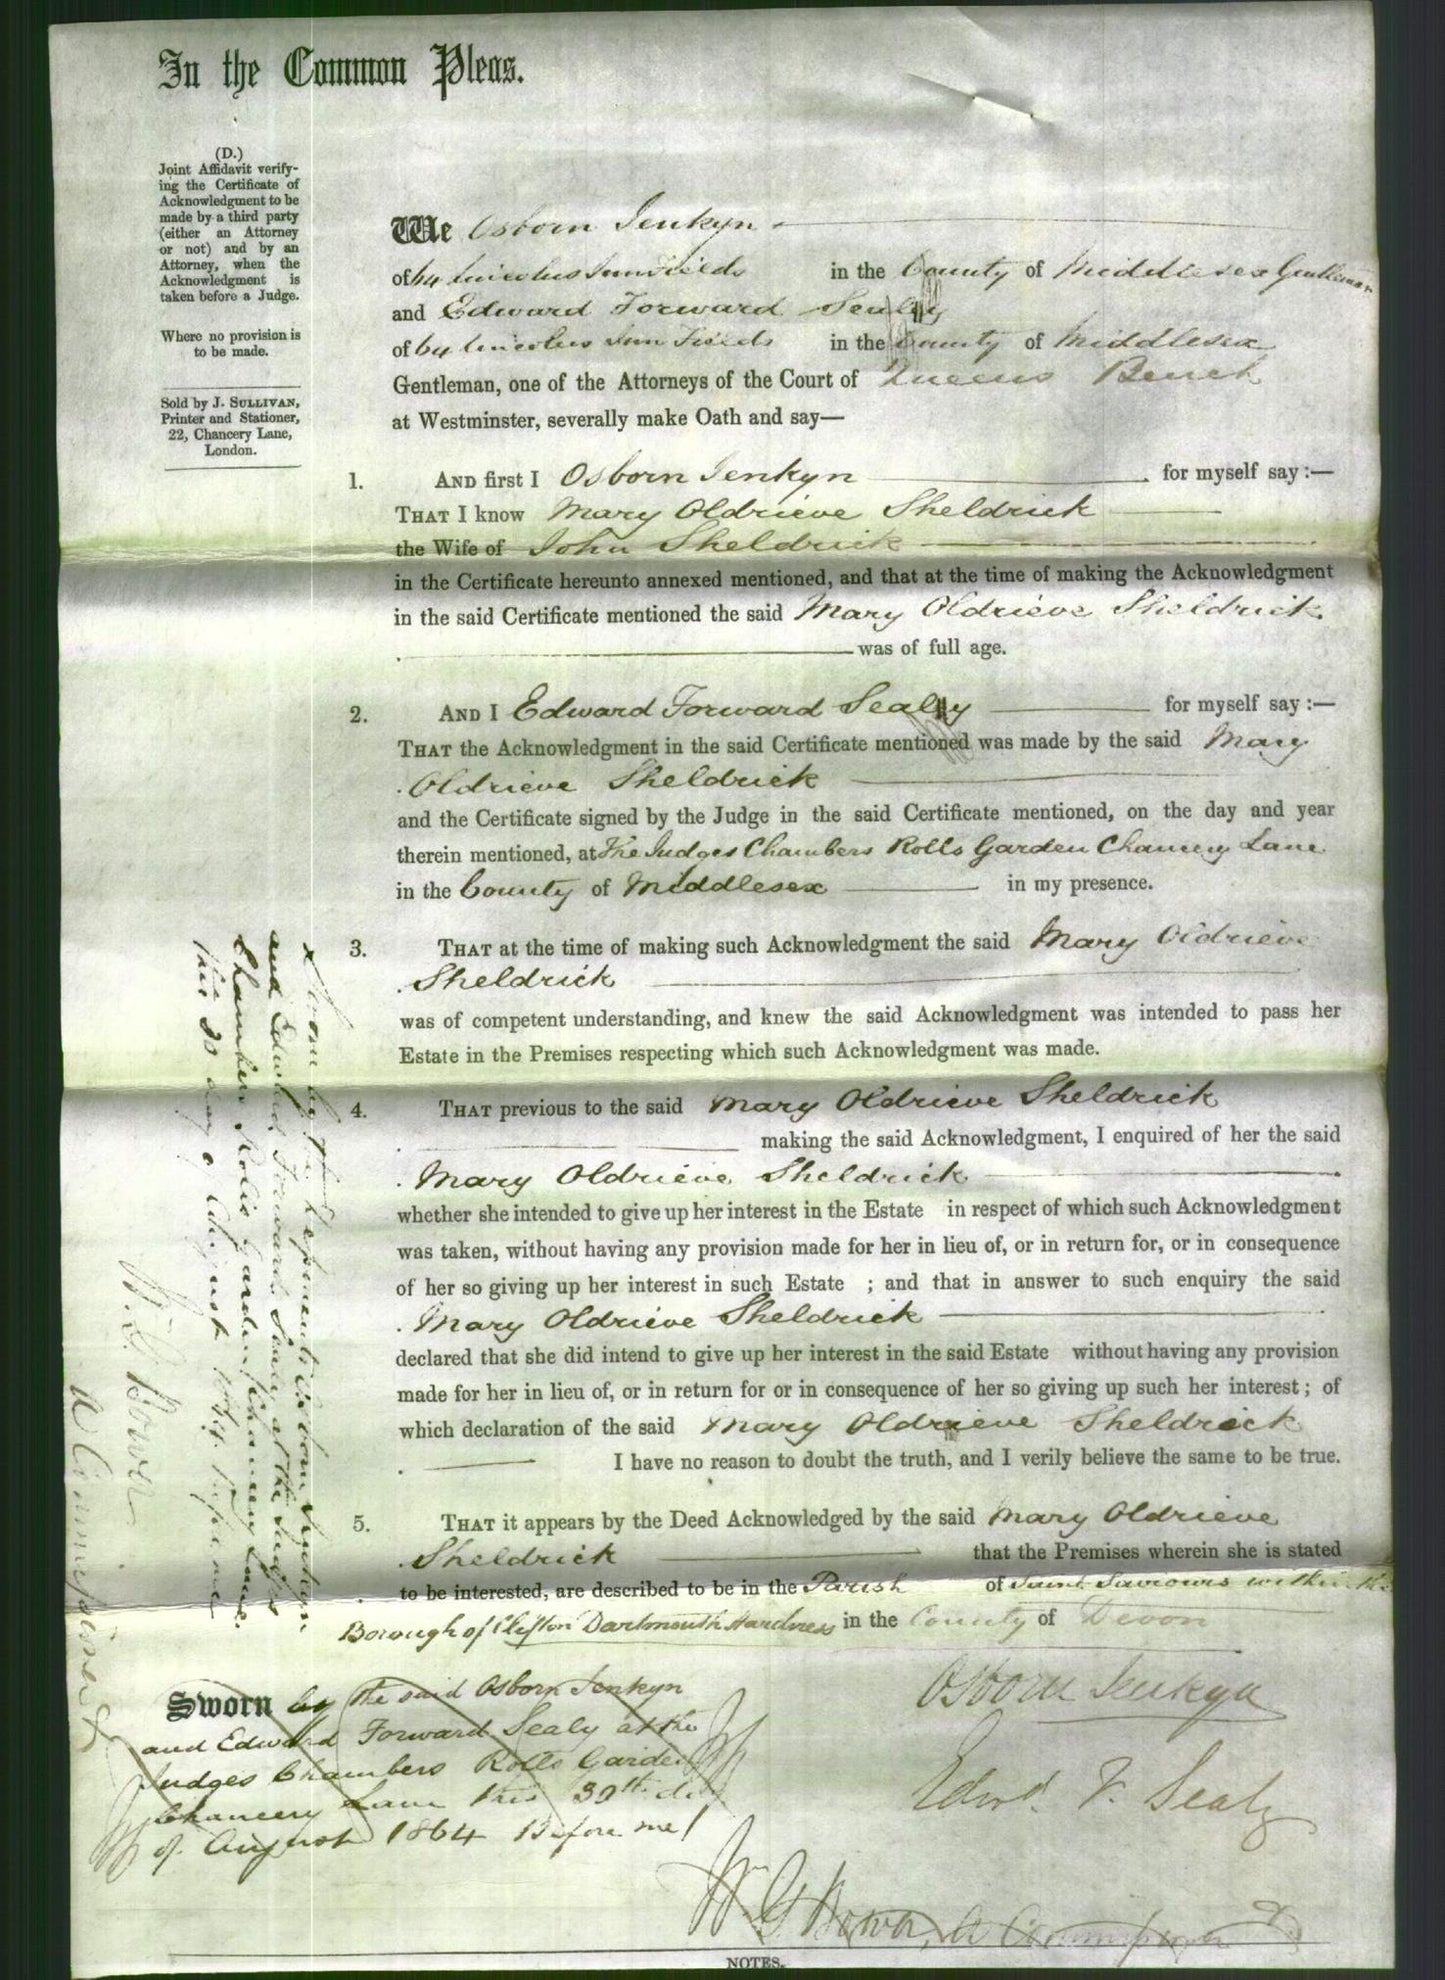 In the Common Pleas.
(D.)
Joint Affidavit verify-
ing the Certificate of
Acknowledgment to be
made by a third party
(either an Attorney
or not) and by an
Attorney, when the
Acknowledgment is
taken before a Judge.
Where no provision is
to be made.
Sold by J. SULLIVAN,
Printer and Stationer,
22, Chancery Lane,
London.
We Osborn Jenkyn
of 64 Lincolns Inn Fields in the County of Middlesex Gentleman
and Edward Forward Sealy
of 64 Lincolns Inn Fields in the County of Middlesex
Gentleman, one of the Attorneys of the Court of Queens Bench
at Westminster, severally make Oath and say—
1. AND first I Osborn Jenkyn for myself say :—
THAT I know Mary Oldrieve Sheldrick
the Wife of John Sheldrick
in the Certificate hereunto annexed mentioned, and that at the time of making the Acknowledgment
in the said Certificate mentioned the said Mary Oldrieve Sheldrick
was of full age.
2. AND I Edward Forward Sealy for myself say :—
THAT the Acknowledgment in the said Certificate mentioned was made by the said Mary
Oldrieve Sheldrick
and the Certificate signed by the Judge in the said Certificate mentioned, on the day and year
therein mentioned, at The Judges Chambers Rolls Garden Chancery Lane
in the County of Middlesex in my presence.
3. THAT at the time of making such Acknowledgment the said Mary Oldrieve
Sheldrick
was of competent understanding, and knew the said Acknowledgment was intended to pass her
Estate in the Premises respecting which such Acknowledgment was made.
4. THAT previous to the said Mary Oldrieve Sheldrick
making the said Acknowledgment, I enquired of her the said
Mary Oldrieve Sheldrick
whether she intended to give up her interest in the Estate in respect of which such Acknowledgment
was taken, without having any provision made for her in lieu of, or in return for, or in consequence
of her so giving up her interest in such Estate ; and that in answer to such enquiry the said
Mary Oldrieve Sheldrick
declared that she did intend to give up her interest in the said Estate without having any provision
made for her in lieu of, or in return for or in consequence of her so giving up such her interest ; of
which declaration of the said Mary Oldrieve Sheldrick
I have no reason to doubt the truth, and I verily believe the same to be true.
5. THAT it appears by the Deed Acknowledged by the said Mary Oldrieve
Sheldrick that the Premises wherein she is stated
to be interested, are described to be in the Parish of Saint Saviours within the
Borough of Clifton Dartmouth Hardness in the County of Devon
Sworn by the said Osborn Jenkyn
and Edward Forward Sealy at the
Judges Chambers Rolls Garden
Chancery Lane this 30th day
of August 1864 Before me
Osborn Jenkyn
Edwd. F. Sealy
W. G. Bower, A Commissioner
x Sworn by the deponents Osborn Jenkyn
and Edward Forward Sealy at the Judges
Chambers Rolls Garden Chancery Lane
this 30 day of August 1864 before me
W. G. Bower
A Commissioner &
NOTES.